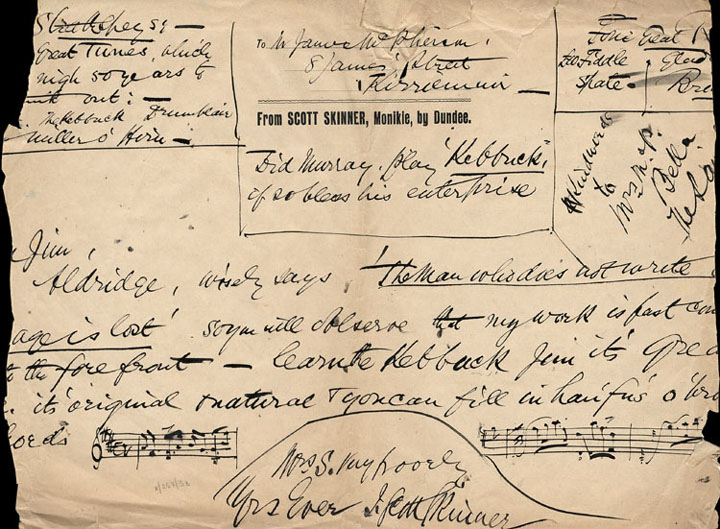 Strathspeys —
great Tunes, which
nigh 50 years to
out:
The Kebbuck Drumblair
Miller o' Hirn —
To Mr James McPherson,
8 James Street
Kirriemuir —
From SCOTT SKINNER, Monikie, by Dundee.
Did Murray play Kebbuck;
if so bless his enterprise
Tone Great
to Fiddle Glad
Skate
Kindwords
to
Mrs McP.
Bella
Jim,
Aldridge, wisely says 'The Man who does not write
age is lost' so you will observe that my work is fast
to the fore front — learn the Kebbuck Jim it's
it's original & natural & you can fill in hanfu's o'
chords
Mrs S. very poorly
Yrs Ever J. Scott Skinner